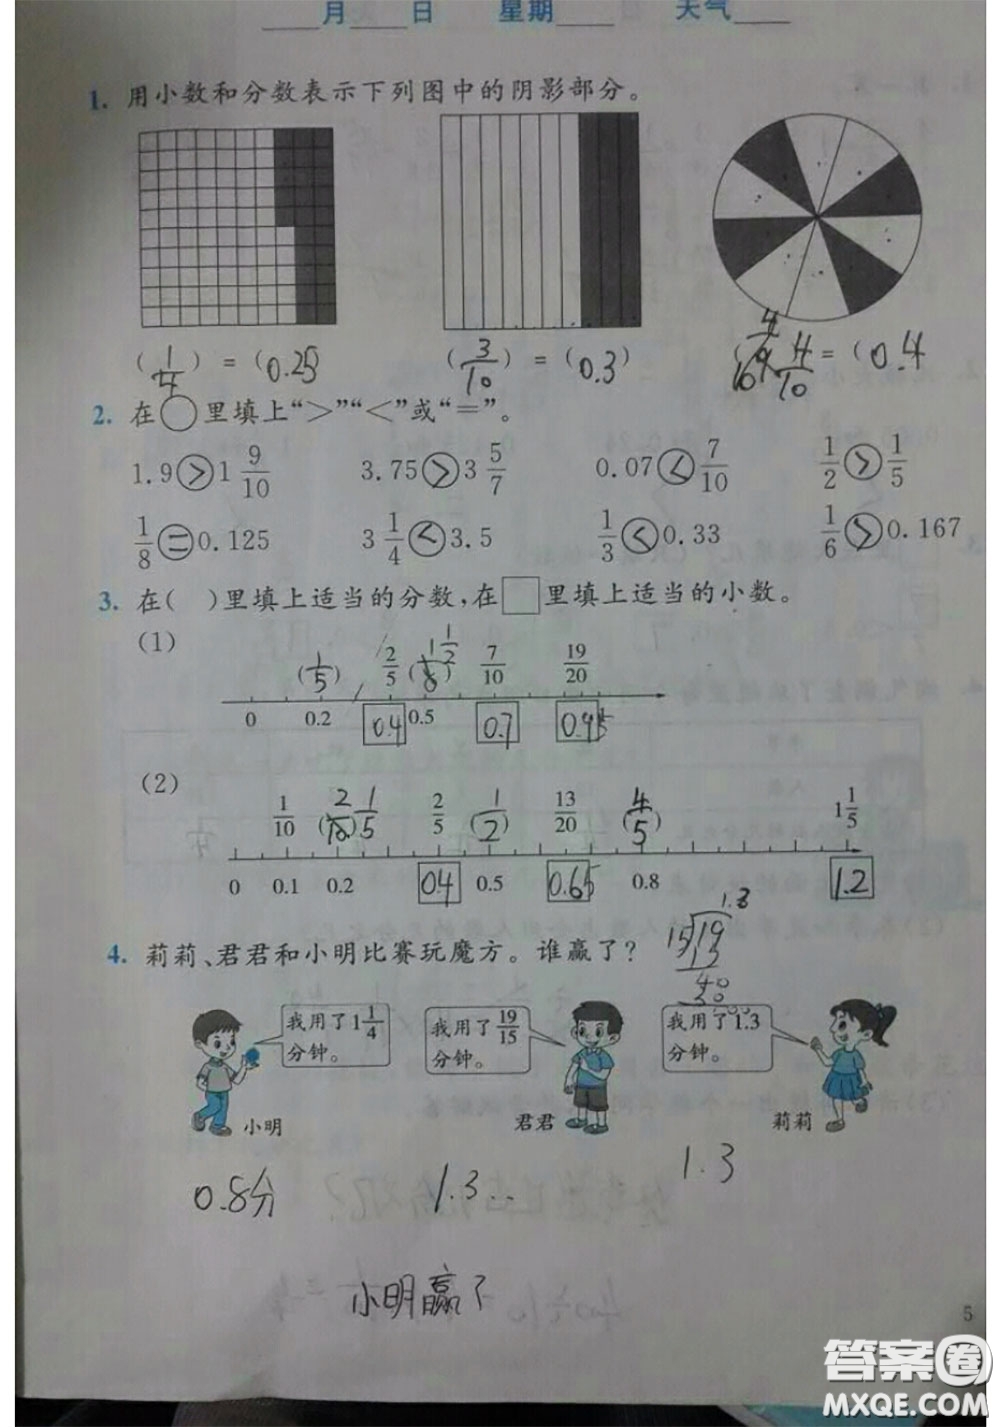 月 日 星期 天气
1. 用小数和分数表示下列图中的阴影部分。
(1/4) = (0.25 (3/10) = (0.3) 4/10 = (0.4
2. 在○里填上“>”“<”或“=”。
1.9 > 1 9/10 3.75 > 3 5/7 0.07 < 7/10 1/2 > 1/5
1/8 = 0.125 3 1/4 < 3.5 1/3 < 0.33 1/6 > 0.167
3. 在( )里填上适当的分数,在□里填上适当的小数。
(1)
(1/5) 2/5 ( 1/2 7/10 19/20
0 0.2 0.4 0.5 0.7 0.95
(2)
1/10 (2/10 1/5 2/5 (1/2) 13/20 (4/5) 1 1/5
0 0.1 0.2 0.4 0.5 0.65 0.8 1.2
4. 莉莉、君君和小明比赛玩魔方。谁赢了?
15 19
我用了1 1/4
分钟。
我用了19/15
分钟。
我用了1.3
分钟。
小明 君君 莉莉
0.8分 1.3... 1.3
小明赢了
5
答案圈
MXQE.COM